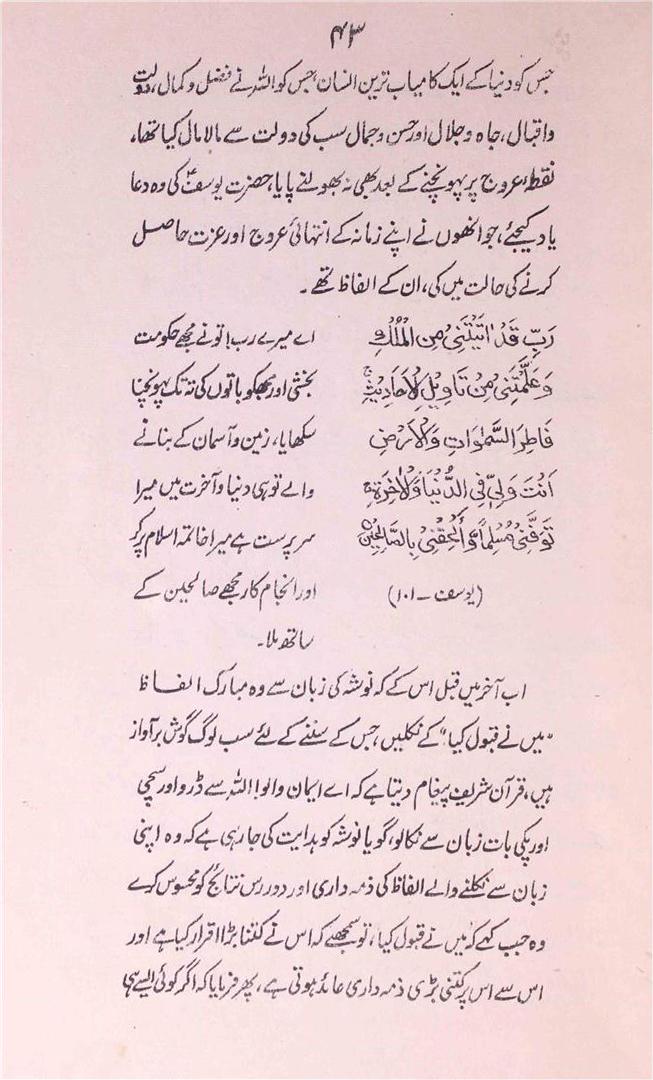 ۴۳
جس کو دنیا کے ایک کامیاب ترین انسان، جس کو اللہ نے فضل و کمال، دولت
و اقبال، جاہ و جلال اور حسن و جمال سب کی دولت سے مالا مال کیا تھا،
نقطۂ عروج پر پہونچنے کے بعد بھی نہ بھولنے پایا، حضرت یوسفؑ کی وہ دعا
یاد کیجئے، جو انھوں نے اپنے زمانہ کے انتہائی عروج اور عزت حاصل
کرنے کی حالت میں کی، ان کے الفاظ تھے۔
رَبِّ قَدْ اٰتَيْتَنِىْ مِنَ الْمُلْكِ
وَعَلَّمْتَنِىْ مِنْ تَاْوِيْلِ الْاَحَادِيْثِۚ
فَاطِرَ السَّمٰوَاتِ وَالْاَرْضِ
اَنْتَ وَلِىّٖ فِى الدُّنْيَا وَالْاٰخِرَةِۚ
تَوَفَّنِىْ مُسْلِمًا وَّاَلْحِقْنِىْ بِالصَّالِحِيْنَ
(یوسف ۔ ۱۰۱)
اے میرے رب! تو نے مجھے حکومت
بخشی اور مجھکو باتوں کی تہ تک پہونچنا
سکھایا، زمین و آسمان کے بنانے
والے تو ہی دنیا و آخرت میں میرا
سرپرست ہے میرا خاتمہ اسلام پر کر
اور انجام کار مجھے صالحین کے
ساتھ ملا۔
اب آخر میں قبل اس کے کہ نوشہ کی زبان سے وہ مبارک الفاظ
"میں نے قبول کیا" کے نکلیں، جس کے سننے کے لئے سب لوگ گوش بر آواز
ہیں، قرآن شریف پیغام دیتا ہے کہ اے ایمان والو! اللہ سے ڈرو اور سچی
اور پکی بات زبان سے نکالو، گویا نوشہ کو ہدایت کی جا رہی ہے کہ وہ اپنی
زبان سے نکلنے والے الفاظ کی ذمہ داری اور دور رس نتائج کو محسوس کرے
وہ جب کہے کہ میں نے قبول کیا، تو سمجھے کہ اس نے کتنا بڑا اقرار کیا ہے اور
اس سے اس پر کتنی بڑی ذمہ داری عائد ہوتی ہے، پھر فرمایا کہ اگر کوئی ایسے ہی